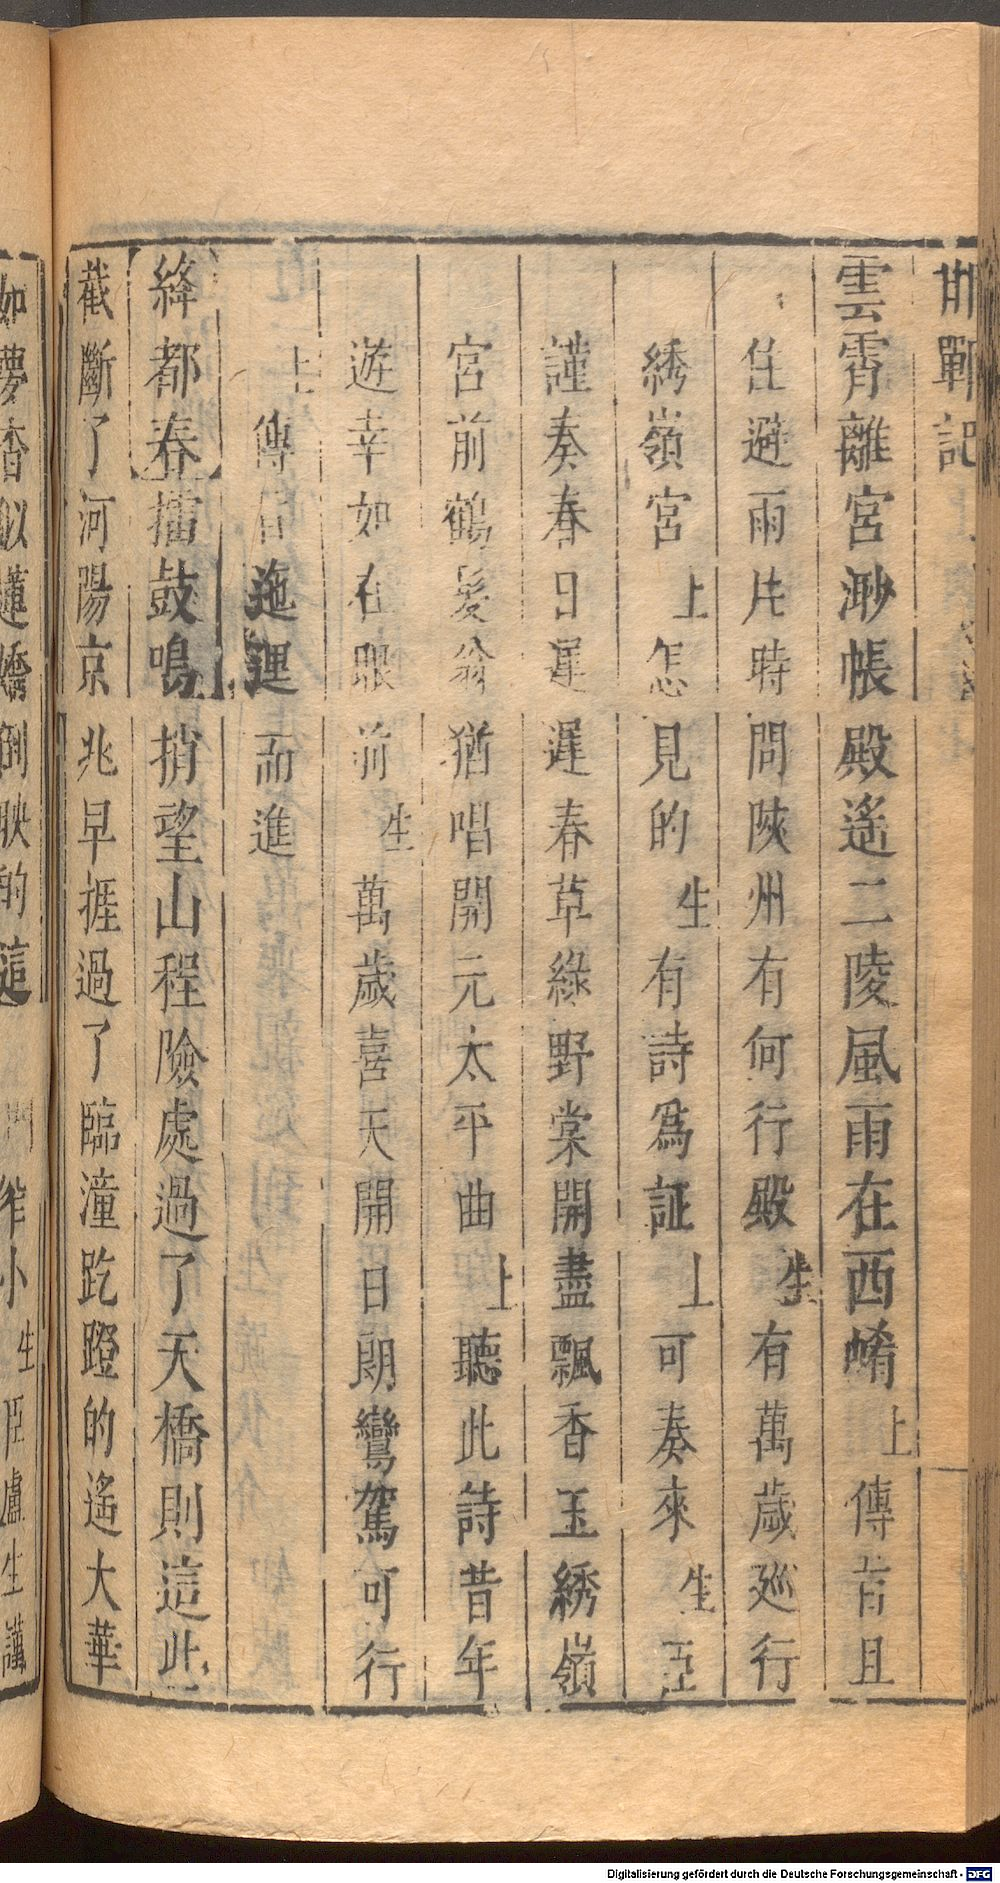 邯鄲記
雲霄離宮渺帳殿遙二陵風雨在西崤上傳旨且
住避雨片時問陝州有何行殿生有萬歲巡行
綉嶺宮上怎見的生有詩爲証上可奏來生臣
謹奏春日遲遲春草綠野棠開盡飄香玉綉嶺
宮前鶴髮翁猶唱開元太平曲上聽此詩昔年
遊幸如在眼前生萬歲喜天開日朗鸞駕可行
上傳旨迤逕而進
絳都春擂鼓鳴捎望山程險處過了天橋則這此
截斷了河陽京兆早捱過了臨潼趷蹬的遙大華
如夢杳似蓮嬌倒映的這
小生臣盧生謹
Digitalisierung gefördert durch die Deutsche Forschungsgemeinschaft - DFG